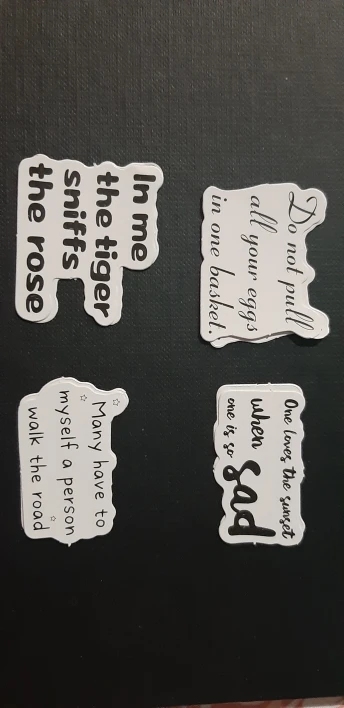 Do not pull
all your eggs
in one basket.
One loves the sunset
when
one is so sad
In me
the tiger
sniffs
the rose
Many have to
myself a person
walk the road